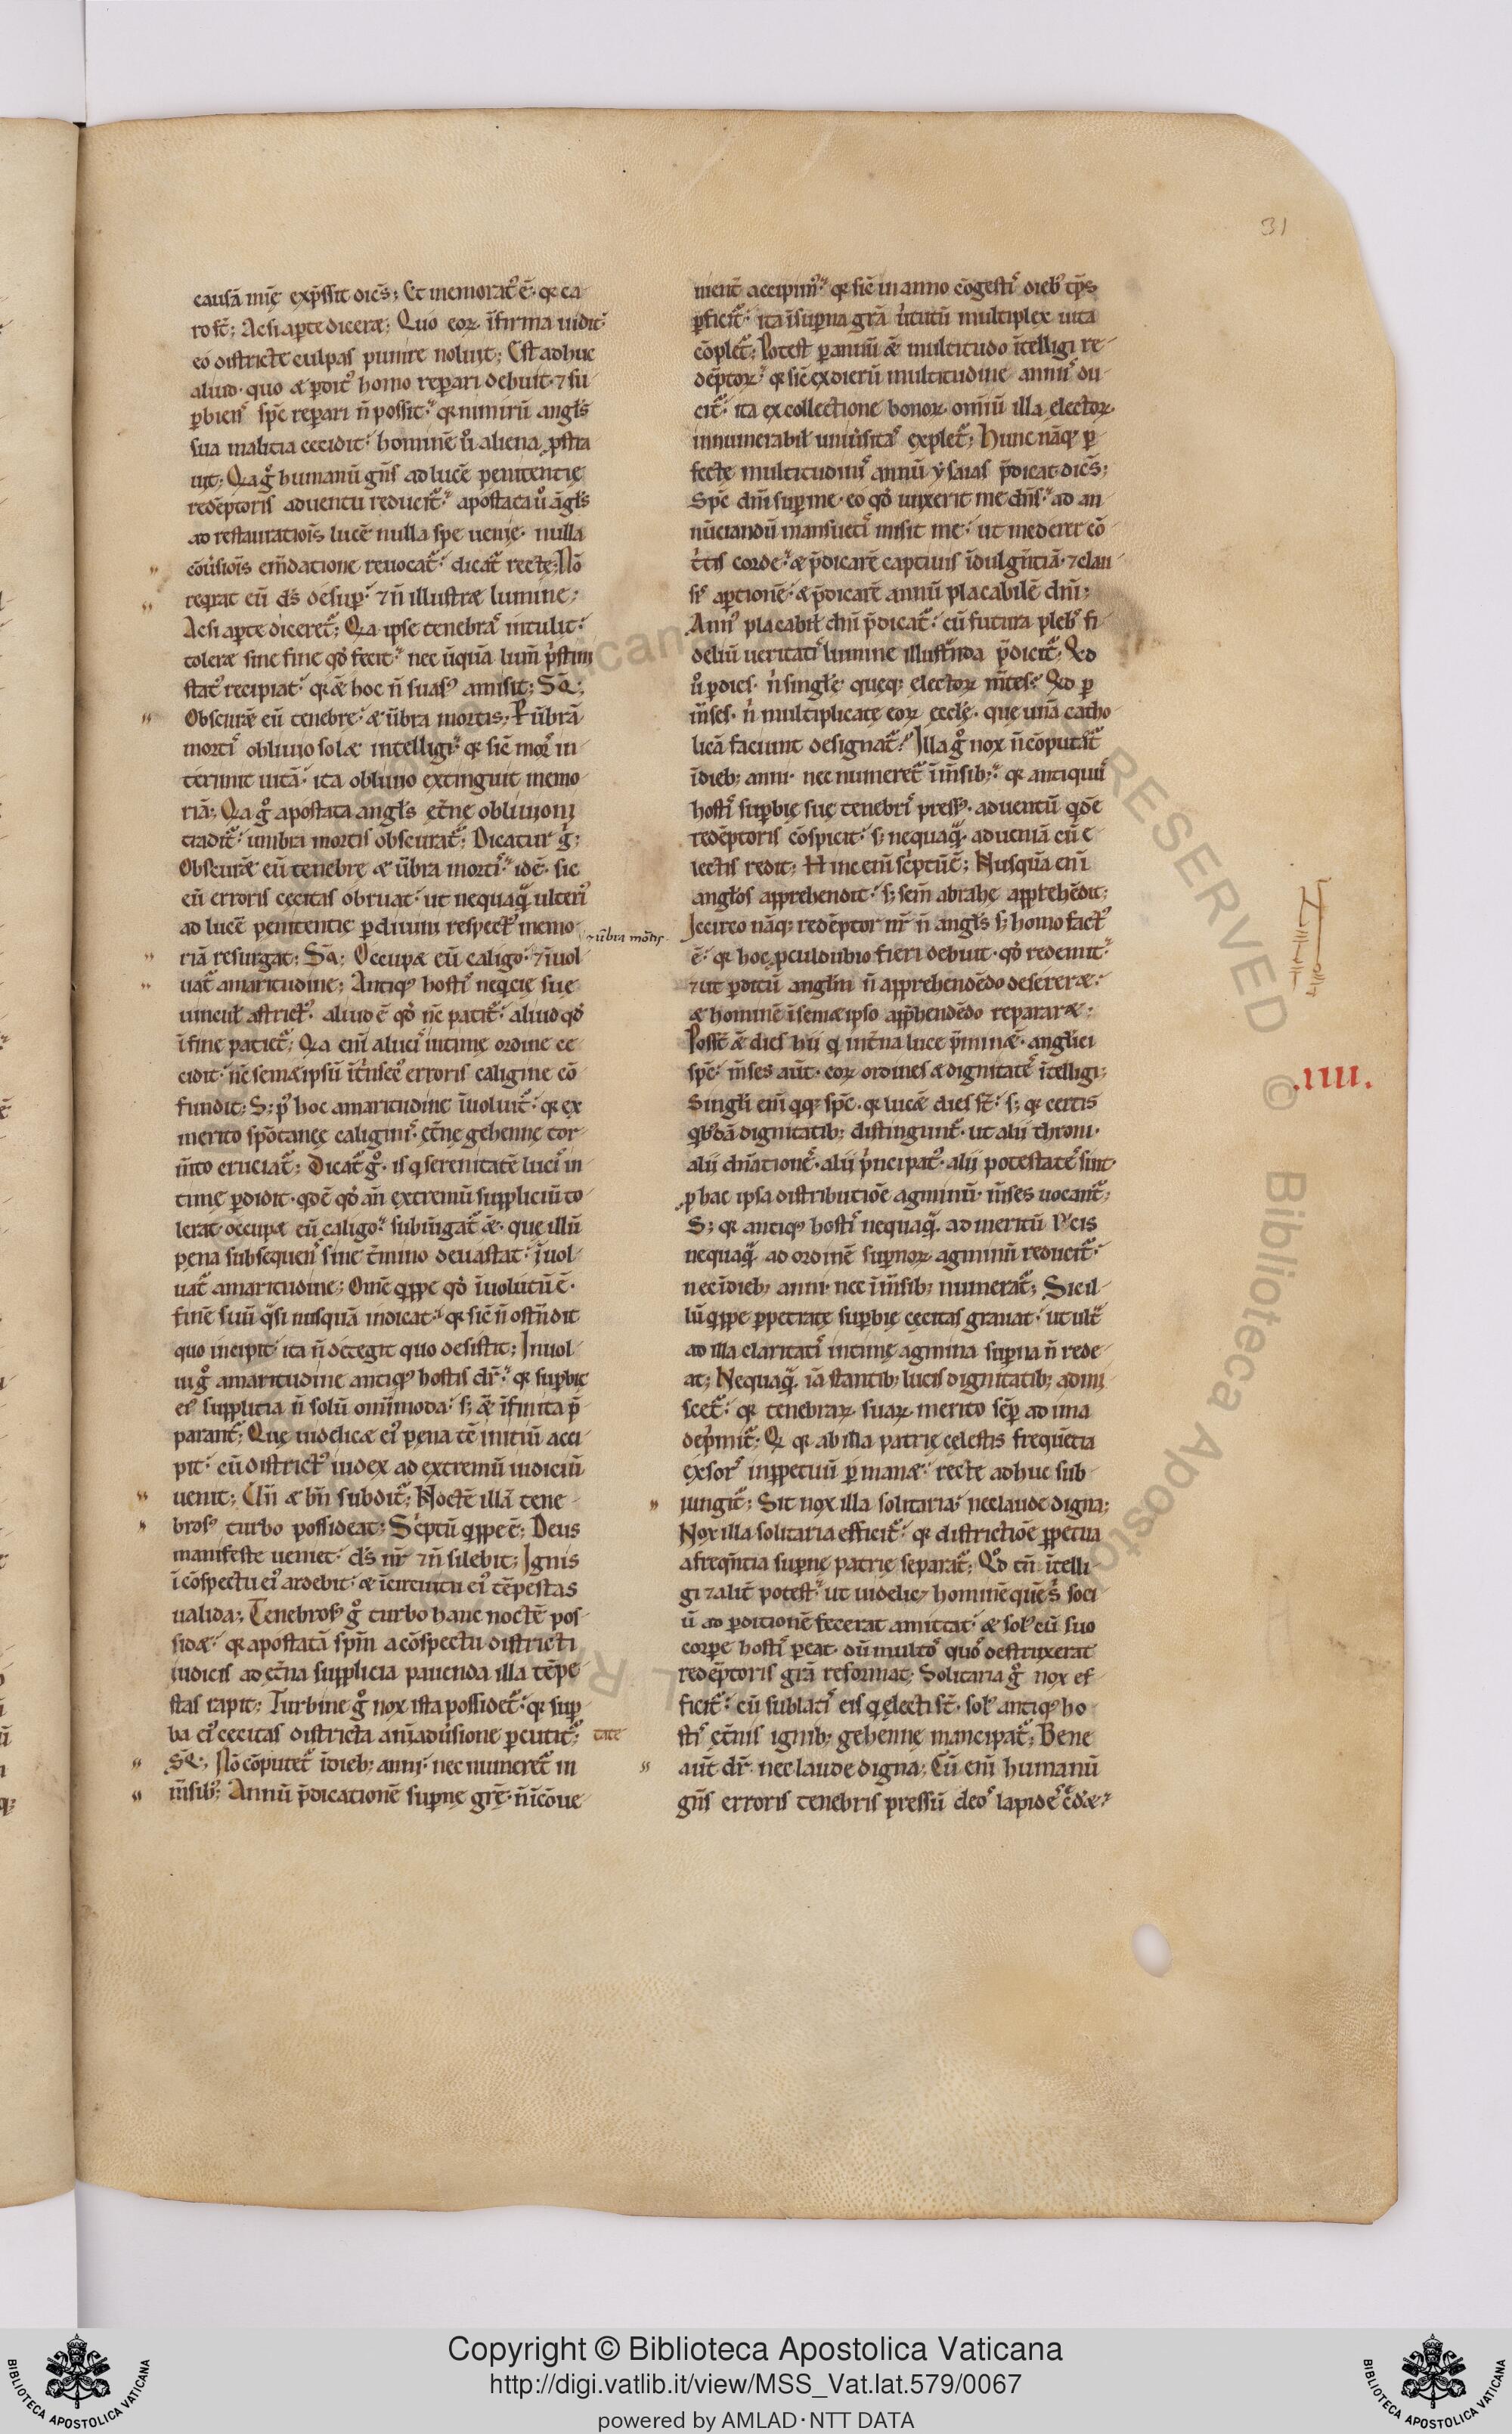 31
causā mię exp̄ssit dicēs; Et memorat᷒ ē· qꝛ ca
ro sт̄; Ac si aꝑte diceræ; Quo eoꝝ īfirma uidit·
eo districte culpas punire noluit; Est adhuc
aliud· quo æ ꝑdit᷒ homo reꝑari debuit· ⁊ su
ꝑbiens sp̄c reꝑari n̄ possit· qꝛ nimirū angl̄s
sua malitia cecidit· hominē u̓ aliena ꝓstra
uit; Qꝛa g̊ humanū gn̄s ad lucē penitentię
redēptoris aduentu reducit᷒· apostata u̓ āgl̄s
ad restaurationis lucē nulla spe uenię· nulla
cōu̓sionis em̄datione reuocat᷒· dicat᷒ recte; Nō
reqrat eū d̄s desuꝑ· ⁊ n̄ illustræ lumine;
Ac si aꝑte diceret᷒; Qꝛa ipse tenebras intulit·
toleræ sine fine qd̓ fecit· nec ūquā lum̄ p̓stini
stat᷒ recipiat· qꝛ ǣ hoc n̄ suas᷒ amisit; SQ;
Obscurǣ eū tenebre· æ ūbra mortis; P ūbrā
mortis obliuio solæ intelligi· qꝛ sic̄ mors in
terimit uitā· ita obliuio extinguit memo
riā; Qꝛa g̊ apostata angl̄s et̄ne obliuioni
tradit᷒· umbra mortis obscurat᷒; Dicatur g̊;
Obscurǣ eū tenebrę æ ūbra mortis· idē· sic
eū erroris cęcitas obruat· ut nequaqᷓ ulteri᷒
ad lucē penitentię ꝑ diuini respect᷒ memo
⁊ ūbra mōtis
riā resurgat; SQ; Occupæ eū caligo· ⁊ īuol
uat᷒ amaritudine; Antiq᷒ hostis neqcię suę
uincul̄ astrict᷒· aliud ē qd̓ nc̄ patit᷒· aliud qd̓
ī fine patiet᷒; Qꝛa eni a lucis intimę ordine ce
cidit· nc̄ semæipsū īt̓nsec᷒ erroris caligine cō
fundit; S; p᷒ hoc amaritudine īuoluit᷒· qꝛ ex
merito spōtanęę caliginis· et̄ne gehennę tor
m̄to cruciat᷒; Dicat᷒ g̊· is q serenitatē lucis in
timę ꝑdidit· qd̄ē qd̓ an̄ extremū suppliciū to
lerat· occupæ eū caligo· subiūgat᷒ ǣ· que illū
pena subsequens sine t̄mino deuastat· īuol
uat᷒ amaritudine; Omē qppe qd̓ īuolutū ē·
finē suū qᷓsi nusquā indicat· qꝛ sic̄ n̄ ostn̄dit
quo incipit· ita n̄ detegit quo desistit; Inuol
ui g̊ amaritudine antiq᷒ hostis dr̄· qꝛ suꝑbie
ei᷒ supplicia n̄ solū omīmoda· s; ǣ īfinita p̄
parant᷒; Quę uidelicæ ei᷒ pena tē initiū acci
pit· cū district᷒ iudex ad extremū iudiciū
uenit; Un̄ æ bn̄ subdit᷒; Noctē illā tene
bros᷒ turbo possideat; Sc̓ptū qppe ē; Deus
manifeste ueniet· d̄s nr̄ ⁊ n̄ silebit; Ignis
ī cōspectu ei᷒ ardebit· æ īcircuitu ei᷒ tēpestas
ualida; Tenebros᷒ g̊ turbo hanc noctē pos
sidæ· qꝛ apostatā spm̄ a cōspectu districti
iudicis ad et̄na supplicia pauenda illa tēpe
stas rapit; Turbine g̊ nox ista possidet᷒· qꝛ suꝑ
ba ei᷒ cecitas districta anīaduersione ꝑcutit᷒;
SQ; Nō cōputet᷒ īdieb; anni· nec numeret᷒ in
m̄sib᷒; Annū p̄dicationē suꝑnę grę̄· n̄ īcōue
nient accipim᷒· qꝛ sic̄ in anno cōgestis dieb᷒ tp̄s
ꝑficit᷒· ita ī suꝑna grā u̓tutū multiplex uita
cōplet᷒; Potest ꝑ annū ǣ multitudo ītelligi re
dēptoꝝ· qꝛ sic̄ ex dierū multitudine annus du
cit᷒· ita ex collectione bonoꝝ omniū illa electoꝝ
innumerabil̄ uniu̓sitas explet᷒; Hunc nāq; ꝑ
fectę multitudinis annū ysaias p̄dicat dicēs;
Spc̄ dn̄i suꝑ me· eo qd̓ unxerit me dn̄s· ad an
nūciandū mansuetis misit me· ut mederer cō
t̓tis corde· æ p̄dicarē captiuis īdulgn̄tiā· ⁊ clau
sis aꝑtionē· æ p̄dicarē annū placabilē dn̄i;
Ann᷒ placabil̄ dn̄i p̄dicat᷒· cū futura plebs fi
deliū ueritatis lumine illustrn̄da p̄dicit᷒; Qd
u̓ ꝑ dies· n̓ singlę queq; electoꝝ mt̄es· Qd ꝑ
m̄ses· n̓ multiplicatę eoꝝ ecclę· que unā catho
licā faciunt designat᷒· Illa g̊ nox n̄ cōputat᷒
īdieb; anni· nec numeret᷒ īm̄sib;· qꝛ antiquus
hostis suꝑbię suę tenebris press᷒· aduentū qd̄ē
redēptoris cōspicit· s; nequaqᷓ· ad ueniā cū e
lectis redit; Hinc eni sc̓ptū ē; Nusqua eni
anglos apprehendit· s; sem̄ abrahę apprehēdit;
Iccirco nāq; redēptor nr̄ n̄ angl̄s s; homo fact᷒
ē· qꝛ hoc ꝓculdubio fieri debuit· qd̓ redemit·
⁊ ut ꝑditū anglm̄ n̄ apprehendēdo desereræ·
æ hominē īsemæipso apphendēdo repararæ·
Possт̄ ǣ dies hii q int̄na luce ꝑmanǣ· anglici
spc̄· m̄ses aūt· eoꝝ ordines æ dignitates ītelligi;
Singli eni qq; spc̄· qꝛ lucǣ dies sт̄· s; qꝛ certis
qb᷒dā dignitatib; distingunt᷒· ut alii throni·
alii dn̄ationes· alii p̓ncipat᷒· alii potestates sint·
ꝓ hac ipsa distributiōe agminū· m̄ses uocant᷒;
S; qꝛ antiq᷒ hostis nequaqᷓ· ad meritū lucis
nequaqᷓ ad ordinē suꝑnoꝝ agminū reducit᷒·
nec īdieb; anni nec īm̄sib; numerat᷒; Sic il
lū qppe ꝑpetratę suꝑbię cęcitas grauat· ut ult̄
ad illa claritatis intimę agmina suꝑna n̄ rede
at; Nequaqᷓ iā stantib; lucis dignitatib; admi
scet᷒· qꝛ tenebraꝝ suaꝝ merito sēꝑ ad ima
dep̓mit᷒; Et qꝛ ab illa patrię celestis frequētia
exsors inꝑpetuū ꝑmanæ· recte adhuc sub
iungit᷒; Sit nox illa solitaria· nec laude digna;
Nox illa solitaria efficit᷒· qꝛ districtiōe ꝑpetua
a freqn̄tia suꝑnę patrię separat᷒; Qd̓ tn̄ ītelli
gi ⁊ alit̄ potest· ut uidelic; hominē quē s̓ soci
ū ad ꝑditionē fecerat amittat· æ sol᷒ cū suo
corpe hostis ꝑeat· dū multos quos destruxerat
redēptoris grā reformat; Solitaria g̊ nox ef
ficit᷒· cū sublatis eis q electi sт̄· sol᷒ antiq᷒ ho
stis et̄nis ignib; gehennę mancipat᷒; Bene
aūt dr̄· nec laude digna; Cū eni humanū
gn̄s erroris tenebris pressū deos lapides c̄deræ·
.IIII.
Copyright © Biblioteca Apostolica Vaticana
http://digi.vatlib.it/view/MSS_Vat.lat.579/0067
powered by AMLAD·NTT DATA
BIBLIOTECA APOSTOLICA VATICANA
BIBLIOTECA APOSTOLICA VATICANA